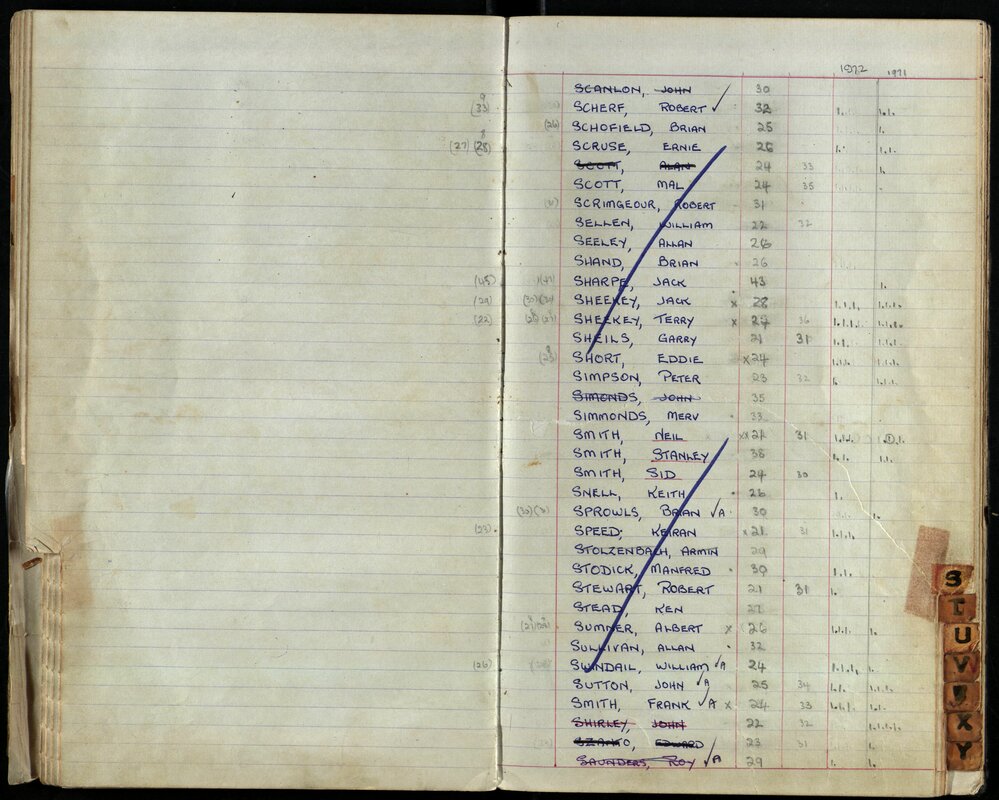 1972 1971
SCANLON, JOHN 30
9 (33) SCHERF, ROBERT ✓ 32
(26) SCHOFIELD, BRIAN 25
8 (27) (28) SCRUSE, ERNIE 26
SCOTT, ALAN 24 33
SCOTT, MAL 24 35
SCRIMGEOUR, ROBERT 31
SELLEN, WILLIAM 22 32
SEELEY, ALLAN 26
SHAND, BRIAN 26
(45) SHARPE, JACK 43
(29) SHEEKEY, JACK x 28
(22) SHEEKEY, TERRY x 27 36
SHEILS, GARRY 21 31
SHORT, EDDIE x 24
SIMPSON, PETER 23 32
SIMONDS, JOHN 35
SIMMONDS, MERV 33
SMITH, NEIL xx 21 31
SMITH, STANLEY 38
SMITH, SID 29 30
SNELL, KEITH 26
SPROWLS, BRIAN ✓A 30
(23) SPEED, KEIRAN x 21 31
STOLZENBACH, ARMIN 29
STODICK, MANFRED 30
STEWART, ROBERT 21 31
STEAD, KEN 27
SUMNER, ALBERT x 26
SULLIVAN, ALLAN 32
(26) SWINDAIL, WILLIAM ✓A 24
SUTTON, JOHN ✓A 25 34
SMITH, FRANK ✓A x 24 33
SHIRLEY, JOHN 22 32
SZANTO, EDWARD 23 31
SAUNDERS, ROY ✓A 29
S
T
U
V
X
Y